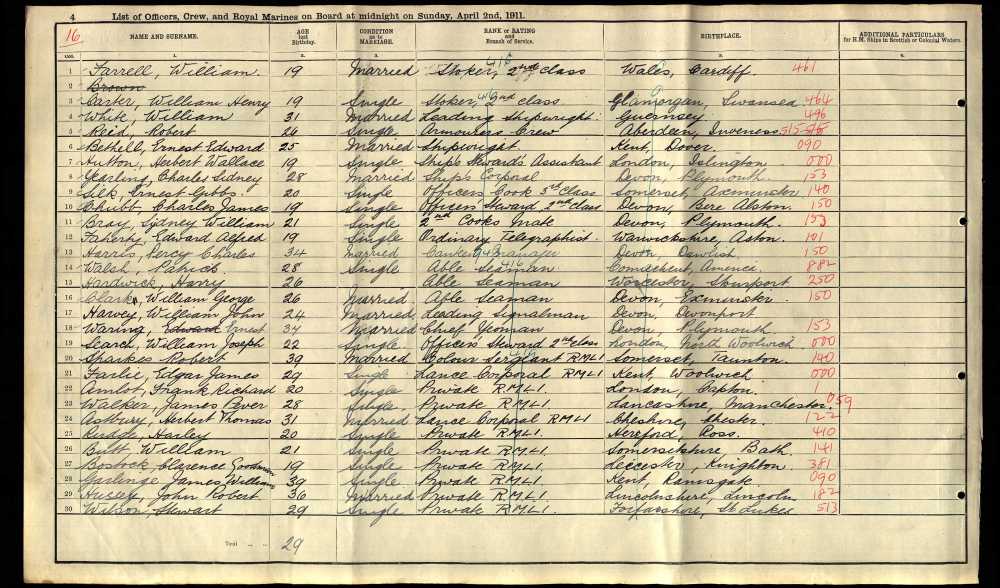 4 List of Officers, Crew, and Royal Marines on Board at midnight on Sunday, April 2nd, 1911.
16
NAME AND SURNAME. AGE last Birthday. CONDITION as to MARRIAGE. RANK or RATING and Branch of Service. BIRTHPLACE. ADDITIONAL PARTICULARS for H.M. Ships in Scottish or Colonial Waters.
1. 2. 3. 4. 5. 6.
1 Farrell, William. 19 Married Stoker, 2nd class 416 Wales, Cardiff. 461
2 Brown
3 Carter, William Henry 19 Single Stoker, 2nd class. 416 Glamorgan, Swansea 464
4 White, William 31 Married Leading Shipwright. Guernsey. 496
5 Reid, Robert 26 Single. Armourers Crew Aberdeen, Inverness 515
6 Bethell, Ernest Edward 25 Married Shipwright. Kent, Dover. 090
7 Hutton, Herbert Wallace 19 Single Ship's Steward's Assistant London, Islington 000
8 Yearling, Charles Sidney 28 Married Ship's Corporal Devon, Plymouth. 153
9 Silk, Ernest Gibbs. 20 Single Officers Cook 3rd Class Somerset, Axminster 140
10 Chubb, Charles James 19 Single Officers' Steward 2nd class Devon, Bere Alston. 150
11 Bray, Sydney William 21 Single 2nd Cooks Mate Devon, Plymouth. 153
12 Faherty, Edward Alfred 19 Single Ordinary Telegraphist. Warwickshire, Aston. 101
13 Harris, Percy Charles 34 Married Canteen Manager Devon Dawlish 150
14 Walsh, Patrick. 28 Single Able Seaman 416 Connecticut, America. 882
15 Hardwick, Harry 26 Able Seaman Worcester, Stourport 250
16 Clark, William George 26 Married Able Seaman Devon, Exminster. 150
17 Harvey, William John 24 Married Leading Signalman Devon, Devonport
18 Waring, Edward Ernest 37 Married Chief Yeoman Devon, Plymouth 153
19 Search, William Joseph 22 Single Officer's Steward 2nd class London, North Woolwich. 000
20 Sharkes Robert 39 Married Colour Sergeant R.M.L.I Somerset, Taunton. 140
21 Farlie, Edgar James 29 Single Lance Corporal R.M.L.I Kent, Woolwich 000
22 Frank Richard 20 Single Private R.M.L.I. London, Capton. 1
23 Walker, James Pever 28 Single. Private R.M.L.I. Lancashire, Manchester. 059
24 Astbury, Herbert Thomas 31 Married Lance Corporal R.M.L.I Cheshire, Chester. 122
25 Harley 20 Single Private R.M.L.I. Hereford, Ross. 410
26 Butt, William 21 Single Private R.M.L.I. Somersetshire, Bath. 141
27 Bostock, Clarence Goodman 19 Single Private R.M.L.I. Leicester, Knighton. 381
28 Garlinge James William 39 Single Private R.M.L.I. Kent, Ramsgate 090
29 John Robert 36 Married Private R.M.L.I. Lincolnshire, Lincoln. 182
30 Wilson, Stewart 29 Single Private R.M.L.I. Forfarshire, St Lukes 513
Total 29